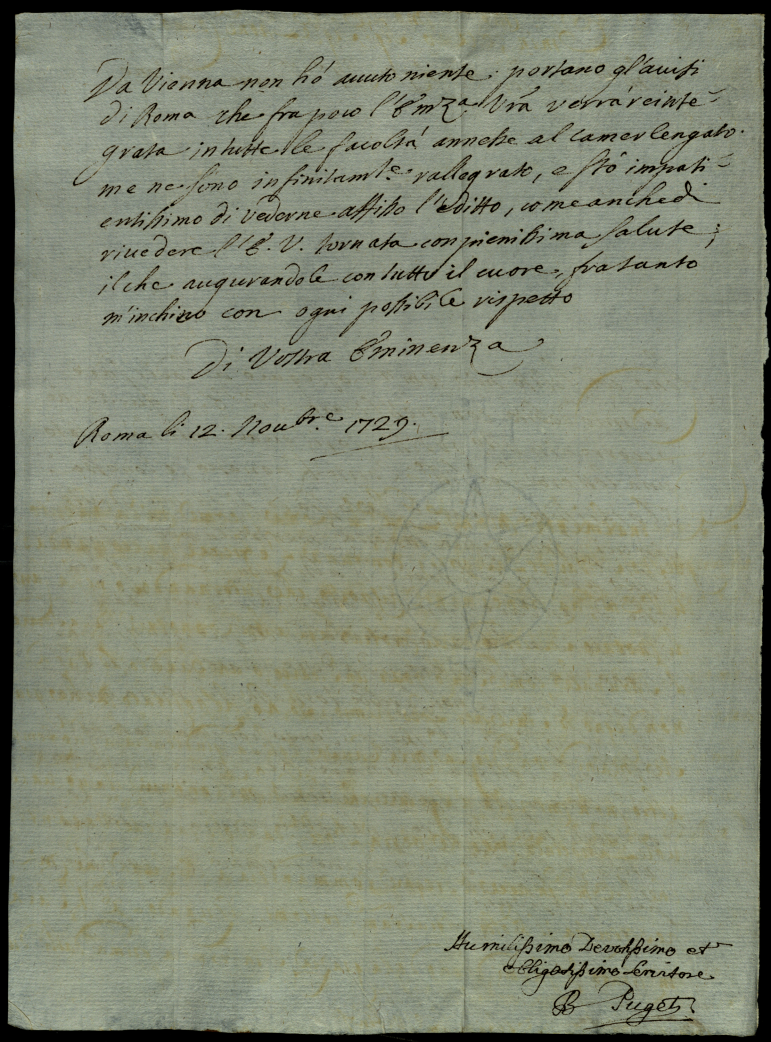 Da Vienna non hò auuto niente; portano gl'auisi
di Roma che fra poco l'Emza Vrã verrà reinte=
grata in tutte le facoltà annehe al camerlengato.
me ne sono infinitamte rallegrato, e stò impati=
entissimo di vederne affisso l'Editto, come anche di
rivedere l'E. V. tornata con pienissima salute;
il che augurandole con tutto il cuore, fra tanto
m'inchino con ogni possibile rispetto
Di Vostra Eminenza
Roma li 12. Noubre 1729.
Humilissimo Devotissimo et
obligatissimo Servitore
Puget